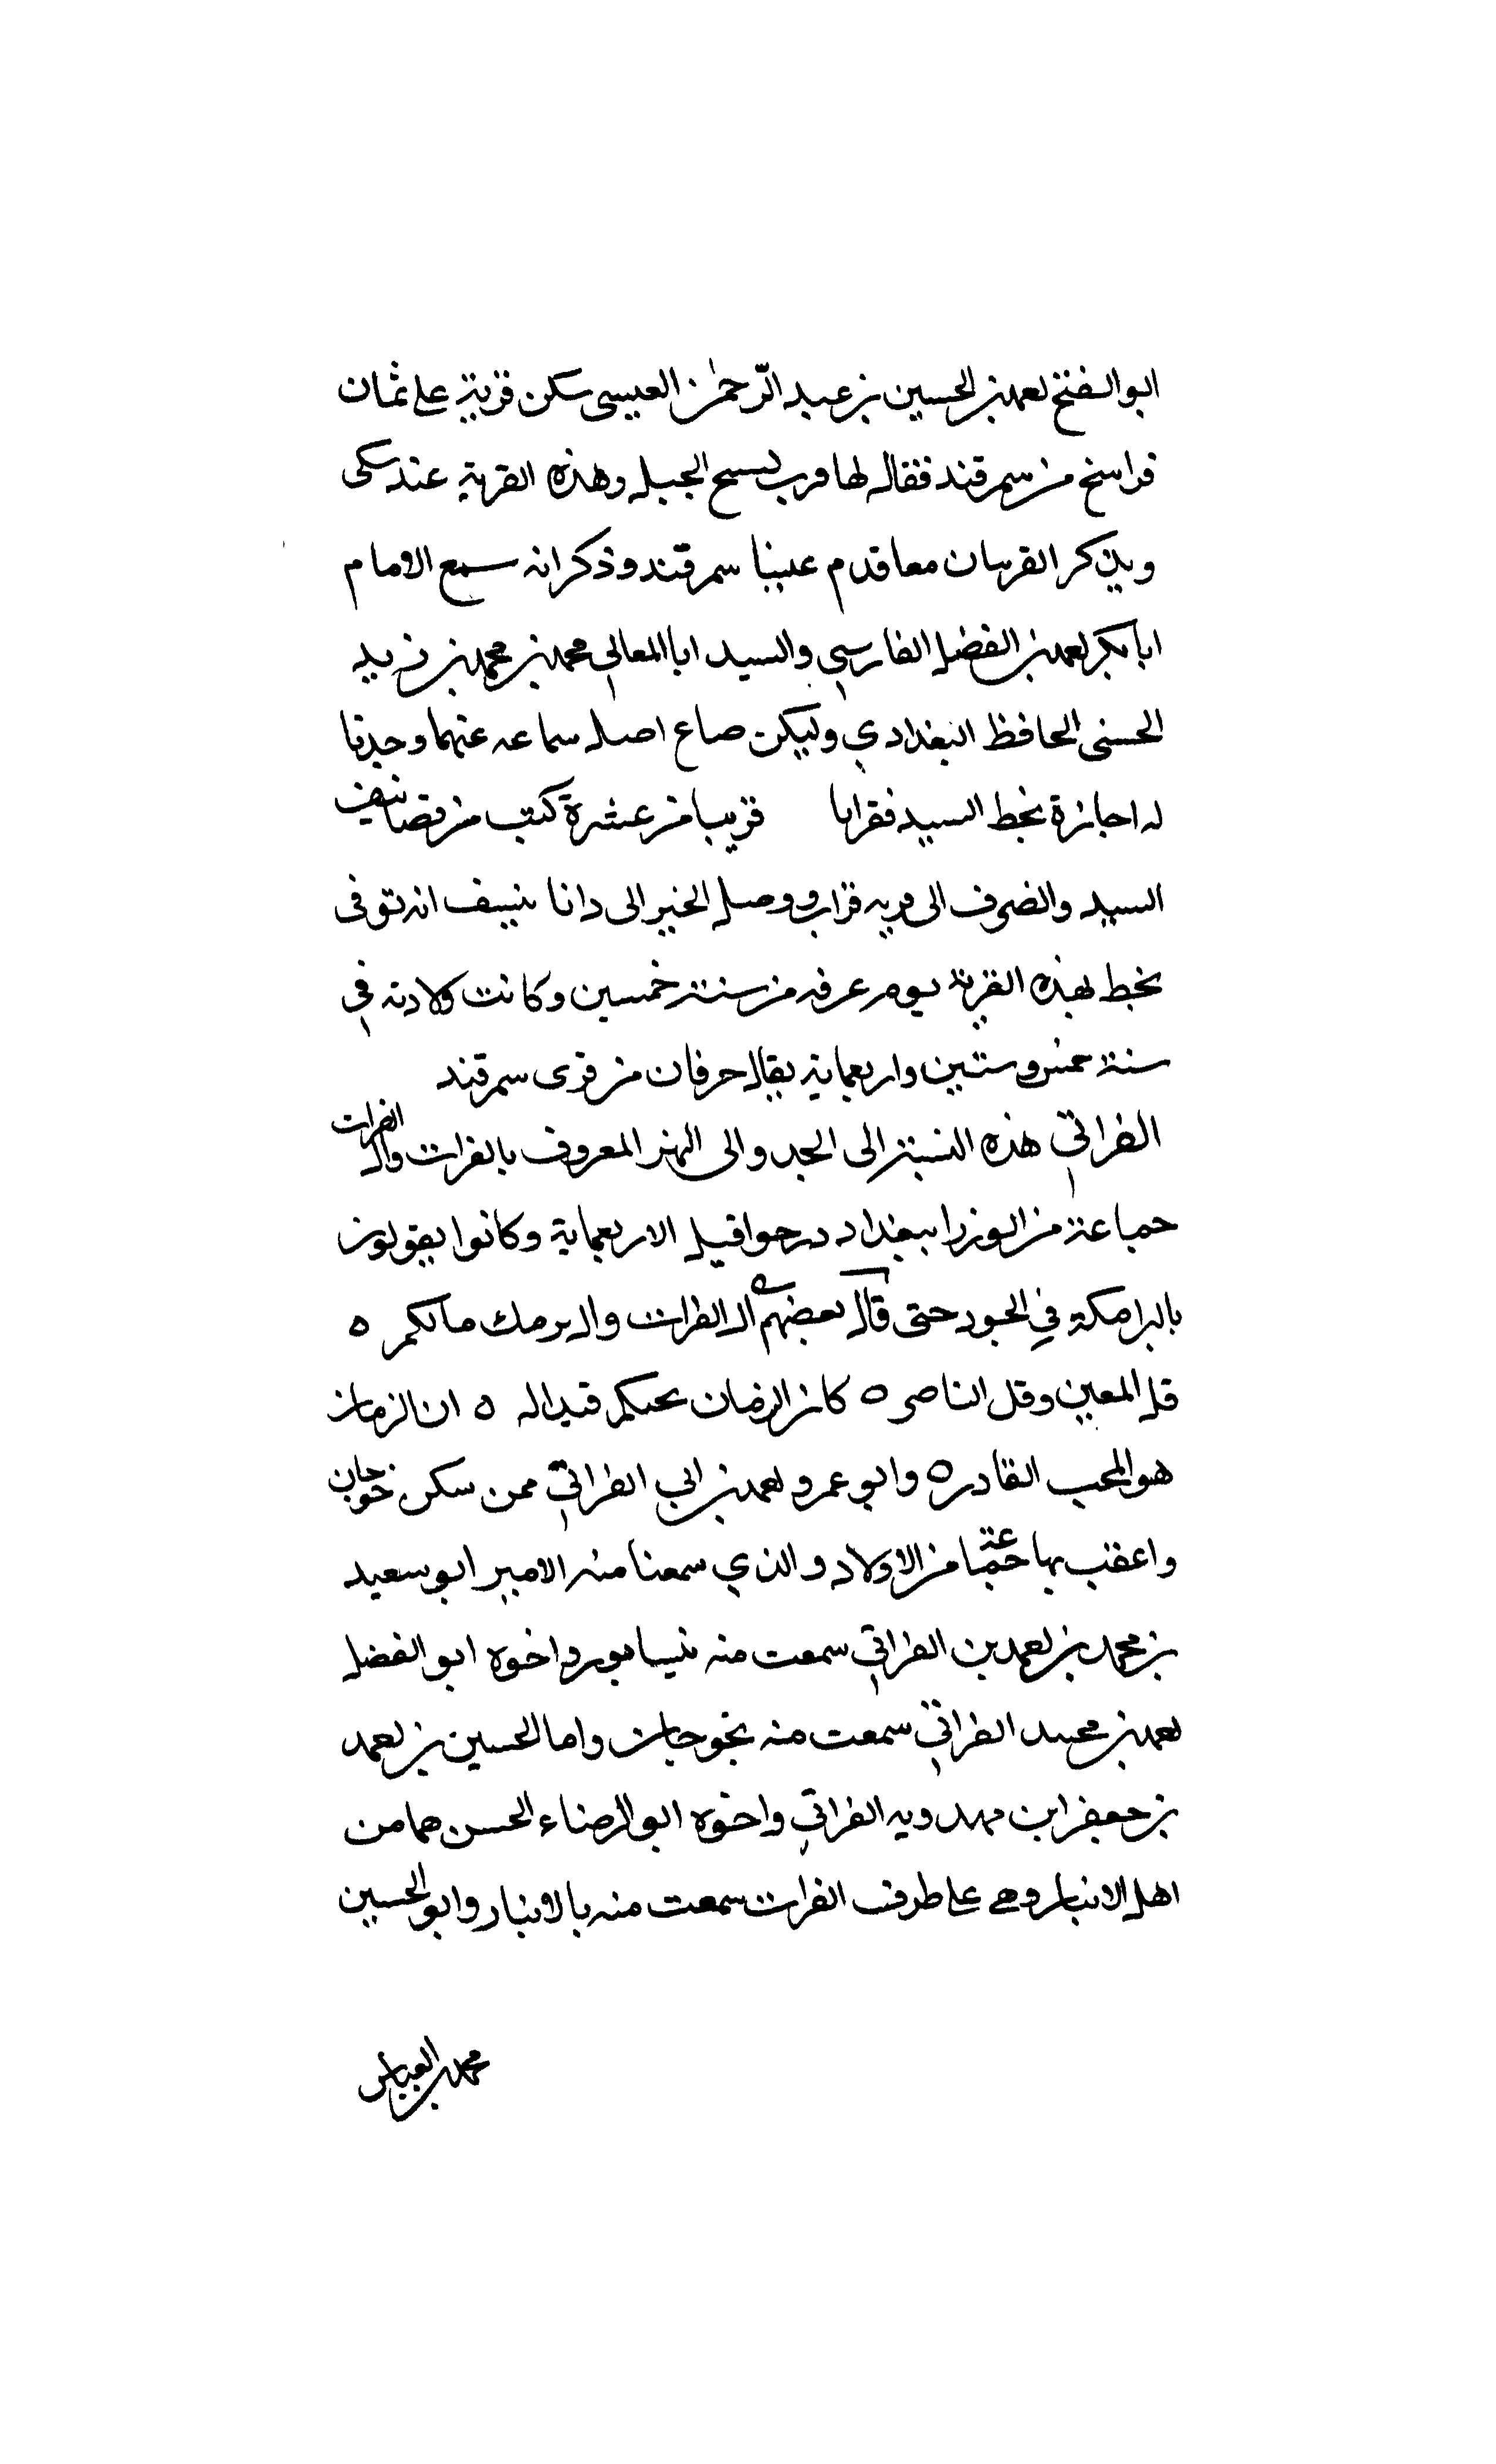 ابو الفتح احمد بن الحسين بن عبد الرحمن العبسى سكن قرية على ثمان
فراسخ من سمرقند فقال لها فرب لسح الجبل وهذه القرية عند سكى
ويذكر القريتان معا قدم علينا سمرقند وذكر انه سمع الامام
ابا بكر احمد بن الفضل الفارسي والسيد ابا المعالي محمد بن محمد بن زيد
الحسنى الحافظ البغدادي وليكن ضاع اصل سماعه عنهما وجدنا
له اجازة بخط السيد فقرانا قريبا من عشرة كتب من تصانيف
السيد وانصرف الى قريه قراب ووصل الخبر الى وانا بنسف انه توفى
بخط بهذه القرية يوم عرفه من سنة خمسين وكانت ولادته في
سنة خمس وستين واربعماية يقال حرفان من قرى سمرقند
الفراتي هذه النسبة الى الجد والى النهر المعروف بالفرات وال الفرات
جماعة من الوزرا ببغداد درجوا قبل الاربعماية وكانوا يقولون
بالبرامكة في الجود حتى قال بعضهم ال الفرات وال برمك مالكم ٥
قل المعين وقل الناصر ٥ كان الزمان يحبكم فبدا له ٥ ان الزمان
هو المحب الغادر ٥ وابو عمرو احمد بن ابي الفراتي ممن سكن خوجان
واعقب بها جماعة من الاولاد والذي سمعنا منه الامير ابو سعيد
بن محمد بن احمد بن الفراتي سمعت منه نيسابور واخوه ابو الفضل
احمد بن محمد الفراتي سمعت منه بخوجان واما الحسين بن احمد
بن جعفر ابن مهدويه الفراتي واخوه ابو الرضاء الحسن هما من
اهل الانبار وهي على طرف الفرات سمعت منه بالانبار وابو الحسين
محمد بن العباس